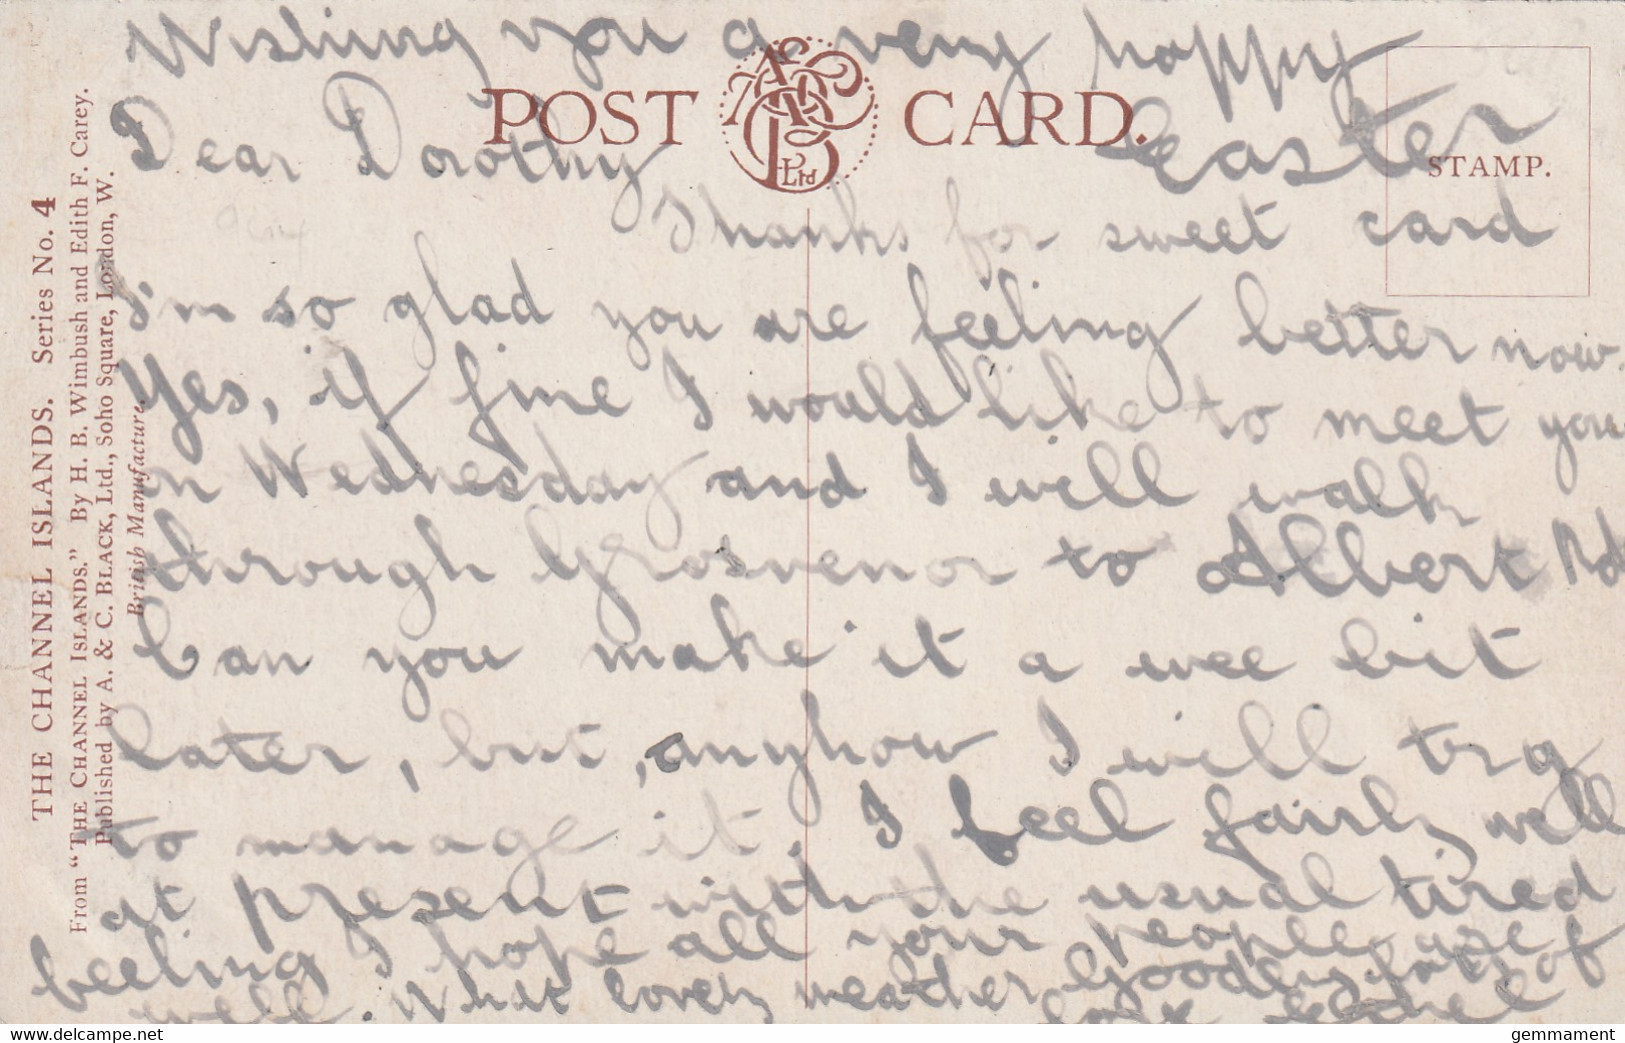 Wishing you a very happy
Easter
POST CARD.
STAMP.
Dear Dorothy
Thanks for sweet card
I'm so glad you are feeling better now.
Yes, if fine I would like to meet you
on Wednesday and I will walk
through Grosvenor to Albert Rd
Can you make it a wee bit
later, but, anyhow I will try
to manage it. I feel fairly well
at present with the usual tired
feeling I hope all your people are
well. What lovely weather Goodbye lots of
love Ethel
THE CHANNEL ISLANDS. Series No. 4
From "THE CHANNEL ISLANDS." By H. B. Wimbush and Edith F. Carey.
Published by A. & C. BLACK, Ltd., Soho Square, London, W.
British Manufacture.
Ltd
gemmament